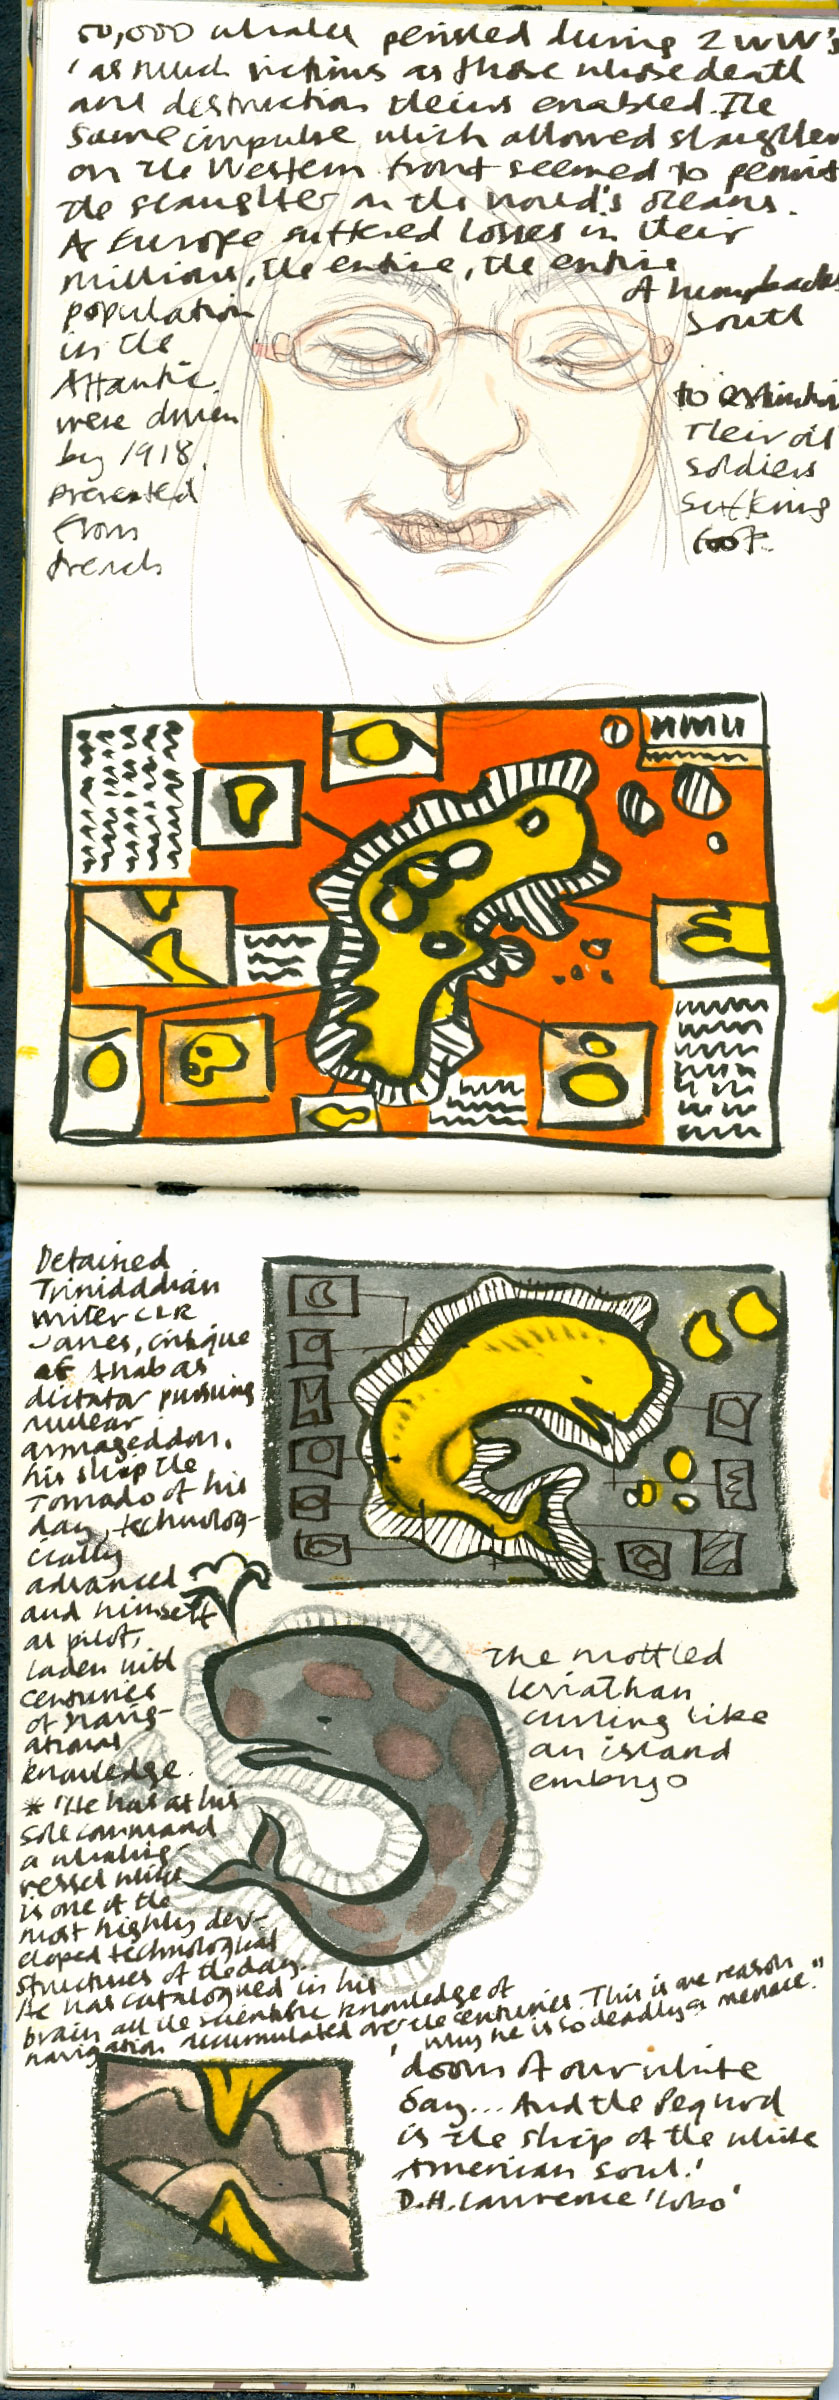 50,000 whales perished during 2 WW's
'as much victims as those whose death
and destruction theirs enabled. The
same impulse which allowed slaughter
on the Western front seemed to permit
the slaughter on the world's oceans.
As Europe suffered losses in their
millions, the entire, the entire
population of humpbacks
in the South
Atlantic
were driven to extinction
by 1918. Their oil
prevented soldiers
from suffering
trench foot.
Detained
Trinidadian
writer CLR
James, critique
of Ahab as
dictator pursuing
nuclear
armageddon.
his ship the
Tornado of his
day, technolog-
ically
advanced
and himself
as pilot,
laden with
centuries
of navig-
ational
knowledge.
* 'He has at his
sole command
a whaling-
vessel which
is one of the
most highly dev-
eloped technological
structures of the day.
He has catalogued in his
brain all the scientific knowledge of
navigation accumulated over the centuries. This is one reason
why he is so deadly a menace."
The mottled
leviathan
curling like
an island
embryo
'doom of our white
day... And the Pequod
is the ship of the white
American soul.'
D.H. Lawrence 'Lobo'